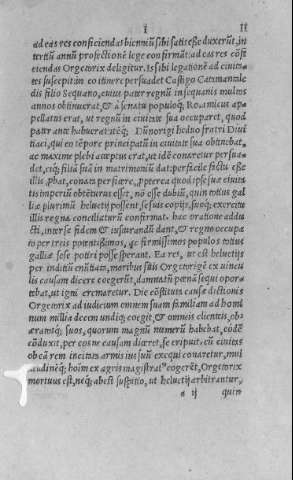 I II
ad eas res conficiendas biennium sibi satis esse duxerūt, in
tertiū annū profectionē lege confirmāt: ad eas res cōfi
ciendas Orgetorix deligitur. Is sibi legationē ad ciuita
tes suscepit: in eo itinere persuadet Castigo Catamanta
dis filio Sequano, cuius pater regnū in sequanis multos
annos obtinuerat, & à senatu populoq; Ro. amicus ap
pellatus erat, ut regnū in ciuitate sua occuparet, quod
pater ante habuerat
Dūnorigi heduo fratri Diui
tiaci, qui eo tēpore principatū in ciuitate sua obtinebat,
ac maxime plebi acceptus erat, ut idē conaretur persua
det, eiq; filiā suā in matrimoniū dat: perfacile factū esse
illis ꝓbat, conata perficere, ꝓpterea quod ipse suæ ciuita
tis imperiū obtēturus esset, nō esse dubiū, quin totius gal
liæ plurimū heluetij possent, se suis copijs, suoq; exercitu
illis regna conciliaturū confirmat. hac oratione addu
cti, inter se fidem & iusiurandū dant, & regno occupa
to per treis potētissimos, ac firmissimos populos totius
galliæ sese potiri posse sperant. Ea res, ut est heluetijs
per inditiū enūtiata, moribus suis Orgetorigē ex uincu
lis causam dicere coegerūt, damnatū pœnā sequi oporte
tebat, ut igni cremaretur. Die cōstituta causæ dictionis
Orgetorix ad iudicium omnem suam familiam ad homi
num millia decem undiq; coegit, & omneis clientis, obæ
ratosq; suos, quorum magnū numerū habebat, eodē
cōduxit, per eos ne causam diceret, se eripuit. cū ciuitas
ob eā rem incitata armis ius suū exequi conaretur, mul
titudinēq; hoīm ex agris magistrat⁹ cogerēt, Orgetorix
mortuus est, neq; abest suspitio, ut heluetij arbitrantur,
a ij quin